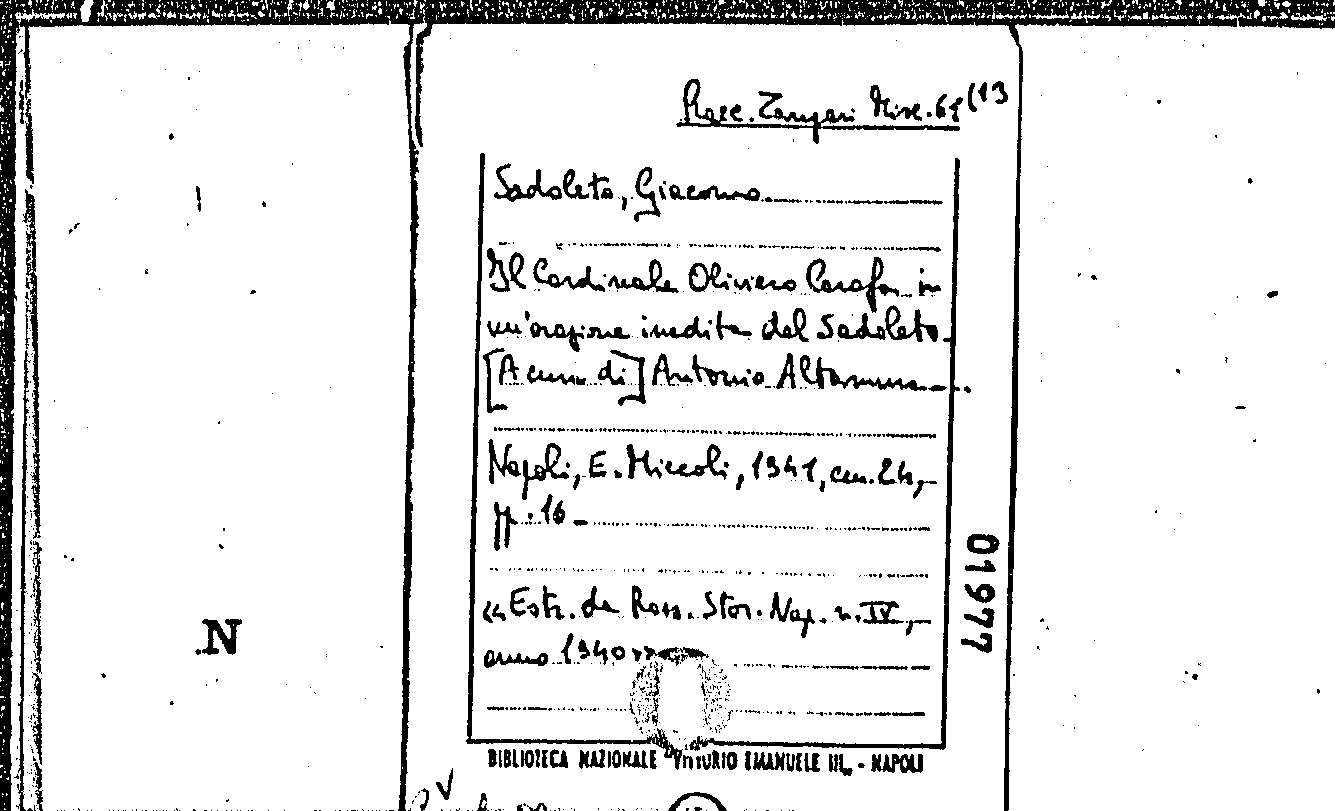 Racc. Zangari Misc. 61 (13
Sadoleto, Giacomo
Il Cardinale Oliviero Carafa in
un'orazione inedita del Sadoleto.
[A cura di] Antonio Altamura.
Napoli, E. Miccoli, 1941, cm. 24,
pp. 16
« Estr. da Rass. Stor. Nap. n. IV,
anno 1940 »
01977
.N
BIBLIOTECA NAZIONALE "VITTORIO EMANUELE III„ - NAPOLI